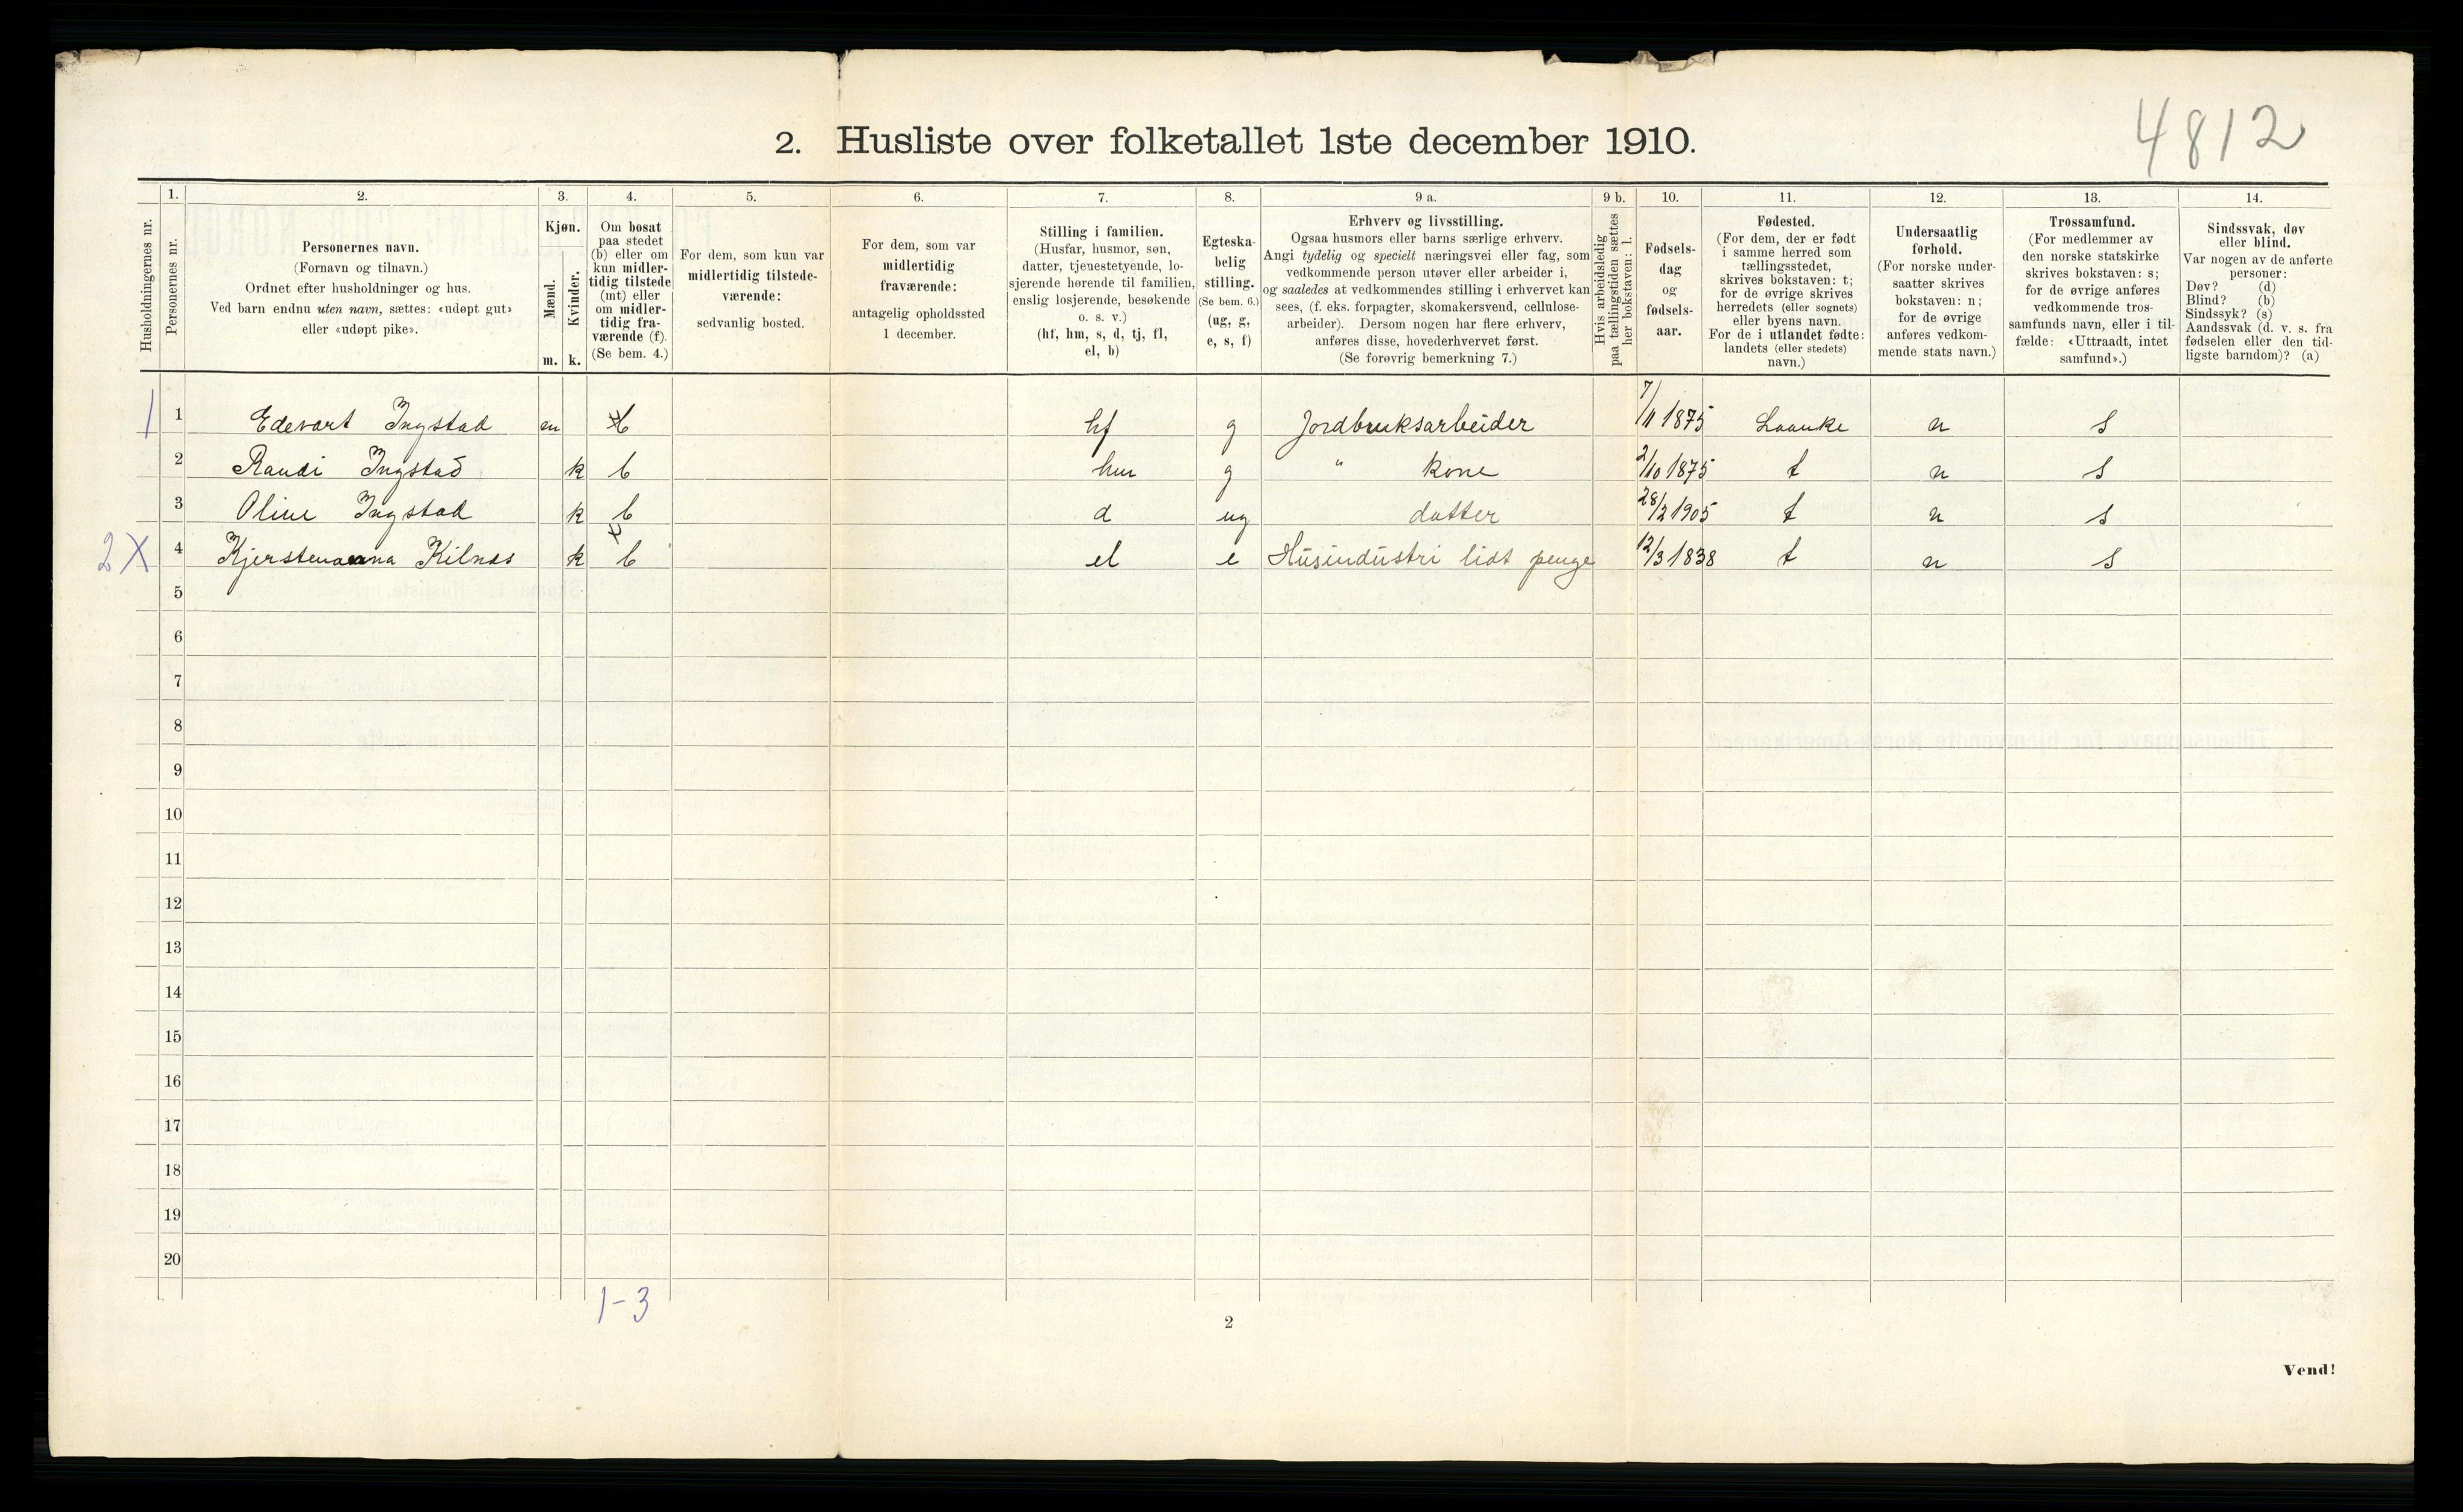 4812
2. Husliste over folketallet 1ste december 1910.
Husholdningernes nr.
1.
Personernes nr.
2.
Personernes navn.
(Fornavn og tilnavn.)
Ordnet efter husholdninger og hus.
Ved barn endnu uten navn, sættes: «udøpt gut»
eller «udøpt pike».
3.
Kjøn.
Mænd.
Kvinder.
m. k.
4.
Om bosat
paa stedet
(b) eller om
kun midler-
tidig tilstede
(mt) eller
om midler-
tidig fra-
værende (f).
(Se bem. 4.)
5.
For dem, som kun var
midlertidig tilstede-
værende:
sedvanlig bosted.
6.
For dem, som var
midlertidig
fraværende:
antagelig opholdssted
1 december.
7.
Stilling i familien.
(Husfar, husmor, søn,
datter, tjenestetyende, lo-
sjerende hørende til familien,
enslig losjerende, besøkende
o. s. v.)
(hf, hm, s, d, tj, fl,
el, b)
8.
Egteska-
belig
stilling.
(Se bem. 6.)
(ug, g,
e, s, f)
9 a.
Erhverv og livsstilling.
Ogsaa husmors eller barns særlige erhverv.
Angi tydelig og specielt næringsvei eller fag, som
vedkommende person utøver eller arbeider i,
og saaledes at vedkommendes stilling i erhvervet kan
sees, (f. eks. forpagter, skomakersvend, cellulose-
arbeider). Dersom nogen har flere erhverv,
anføres disse, hovederhvervet først.
(Se forøvrig bemerkning 7.)
9 b.
Hvis arbeidsledig
paa tællingstiden sættes
her bokstaven: l.
10.
Fødsels-
dag
og
fødsels-
aar.
11.
Fødested.
(For dem, der er født
i samme herred som
tællingsstedet,
skrives bokstaven: t;
for de øvrige skrives
herredets (eller sognets)
eller byens navn.
For de i utlandet fødte:
landets (eller stedets)
navn.)
12.
Undersaatlig
forhold.
(For norske under-
saatter skrives
bokstaven: n;
for de øvrige
anføres vedkom-
mende stats navn.)
13.
Trossamfund.
(For medlemmer av
den norske statskirke
skrives bokstaven: s;
for de øvrige anføres
vedkommende tros-
samfunds navn, eller i til-
fælde: «Uttraadt, intet
samfund».)
14.
Sindssvak, døv
eller blind.
Var nogen av de anførte
personer:
Døv? (d)
Blind? (b)
Sindssyk? (s)
Aandssvak (d. v. s. fra
fødselen eller den tid-
ligste barndom)? (a)
1 1 Edevart Ingstad m b hf g Jordbruksarbeider 7/11 1875 Laanke n s
2 Randi Ingstad k b hm g " kone 2/10 1875 t n s
3 Oline Ingstad k b d ug datter 28/2 1905 t n s
2 X 4 Kjerstenanna Kilnes k b el e Husindustri lidt penge 12/3 1838 t n s
5
6
7
8
9
10
11
12
13
14
15
16
17
18
19
20
1-3
2
Vend!